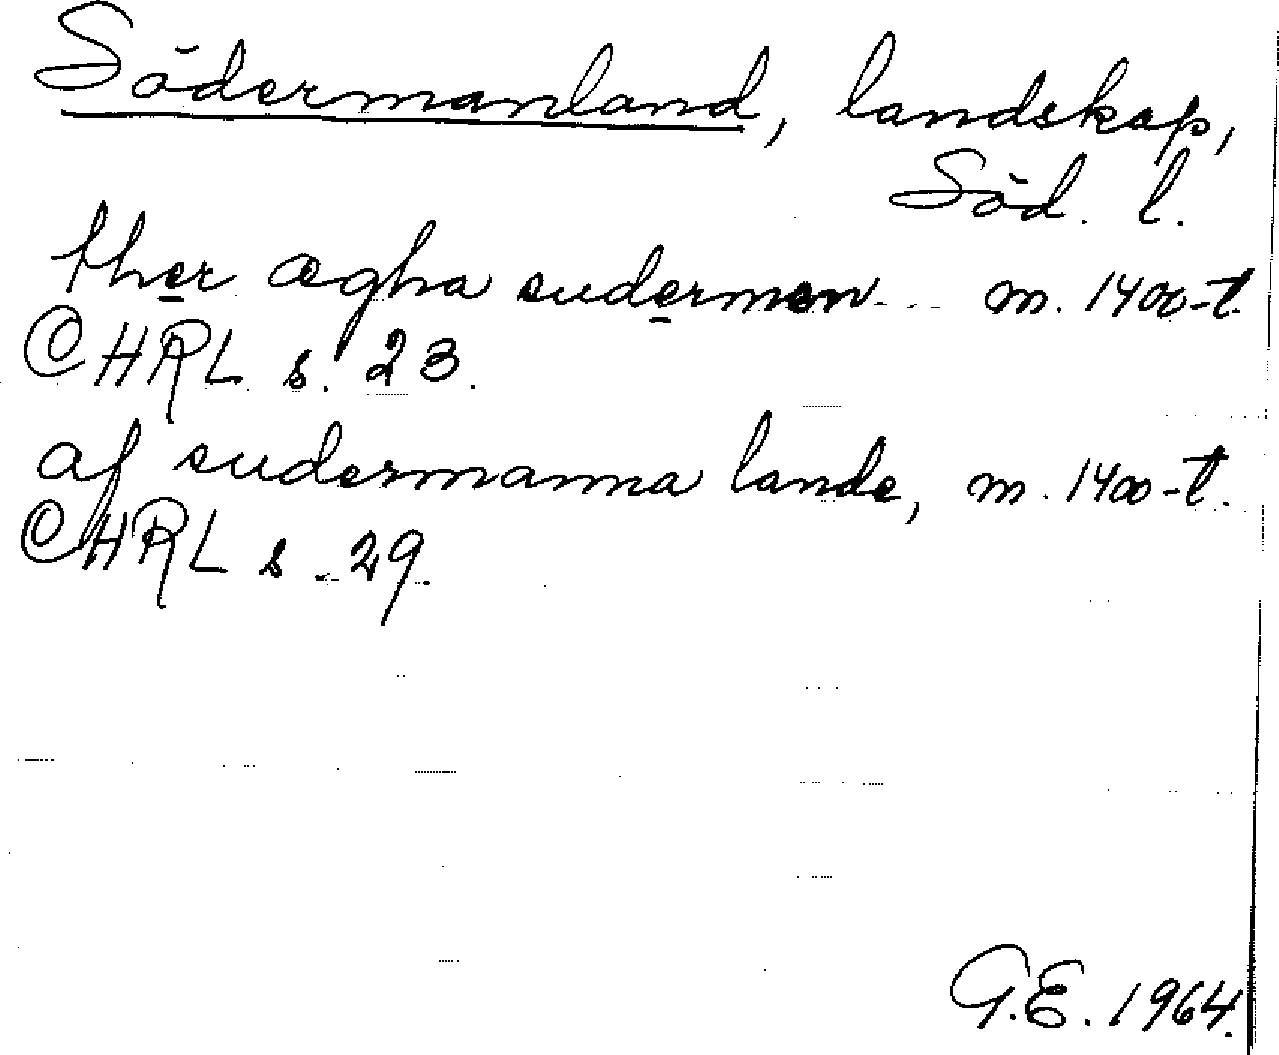 Södermanland, landskap,
Söd. l.
ther ægha sudermen... m. 1400-t.
CHRL s. 23.
af sudermanna lande, m. 1400-t.
CHRL s. 29.
G.E. 1964.